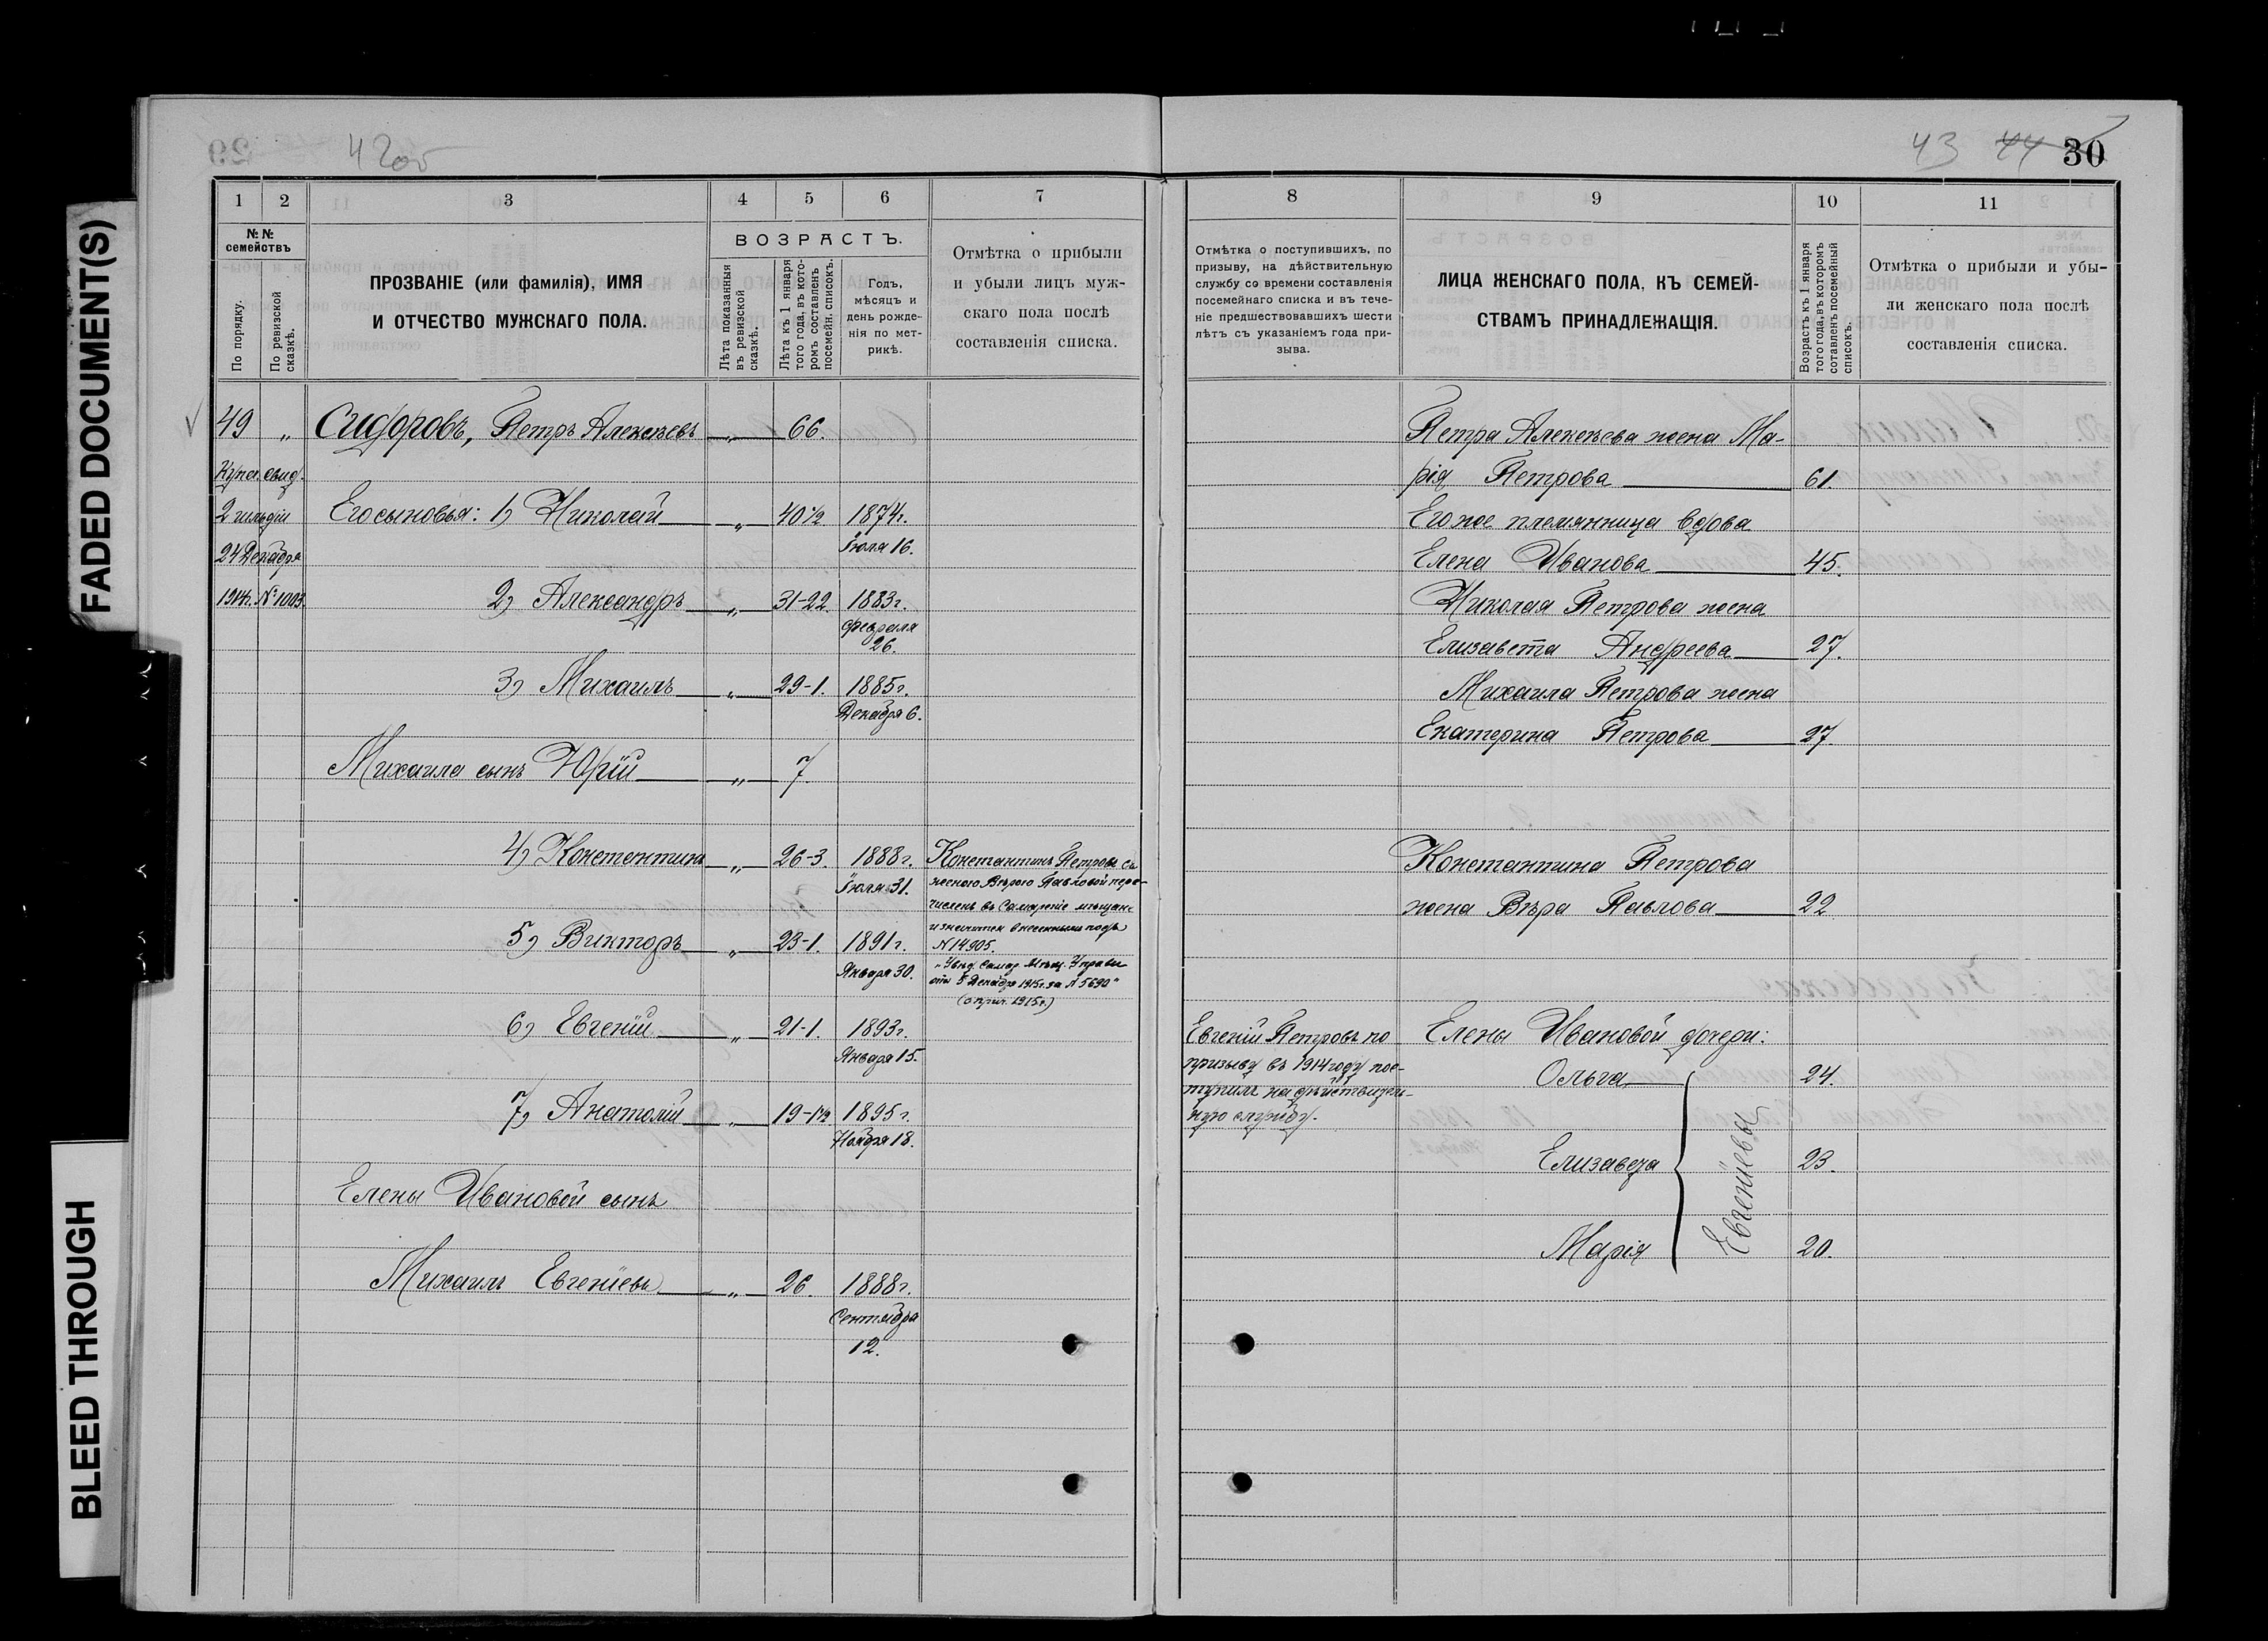 FADED DOCUMENT(S)
BLEED THROUGH
42об
1 2 3 4 5 6 7
№№ семействъ
По порядку.
По ревизской сказкѣ.
ПРОЗВАНІЕ (или фамилія), ИМЯ
И ОТЧЕСТВО МУЖСКАГО ПОЛА.
ВОЗРАСТЪ.
Лѣта показанныя въ ревизской сказкѣ.
Лѣта къ 1 января того года, въ которомъ составленъ посемейн. списокъ.
Годъ,
мѣсяцъ и
день рожде-
нія по мет-
рикѣ.
Отмѣтка о прибыли
и убыли лицъ муж-
скаго пола послѣ
составленія списка.
49 „ Сидоровъ, Петръ Алексѣевъ „ 66.
Купеч. свид.
2 гильдіи Его сыновья: 1) Николай „ 40½ 1874г.
24 Декабря Іюля 16.
1914г. №1003 2) Александръ „ 31-22. 1883г.
Февраля
26.
3) Михаилъ „ 29-1. 1885г.
Декабря 6.
Михаила сынъ Юрій „ 7.
4) Констентинъ „ 26-3. 1888г.
Іюля 31.
Константинъ Петровъ съ
женою Вѣрою Павловой пере-
численъ въ Самарскіе мѣщане
№14905.
„Увѣд. Самар. Мѣщ. Управы
отъ 5 Декабря 1915г. за №5690“
(с прич. 1915г.)
5) Викторъ „ 23-1. 1891г.
Января 30.
6) Евгеній „ 21-1. 1893г.
Января 15.
7) Анатолій „ 19-1½ 1895г.
Ноября 18.
Елены Ивановой сынъ
Михаилъ Евгеніевъ „ 26. 1888г.
Сентября
12.
43 44 30
8 9 10 11
Отмѣтка о поступившихъ, по
призыву, на дѣйствительную
службу со времени составленія
посемейнаго списка и въ тече-
ніе предшествовавшихъ шести
лѣтъ съ указаніемъ года при-
зыва.
ЛИЦА ЖЕНСКАГО ПОЛА, КЪ СЕМЕЙ-
СТВАМЪ ПРИНАДЛЕЖАЩІЯ.
Возрастъ къ 1 января
того года, въ которомъ
составленъ посемейный
списокъ.
Отмѣтка о прибыли и убы-
ли женскаго пола послѣ
составленія списка.
Петра Алексѣева жена Ма-
рія Петрова 61.
Его же племянница вдова
Елена Иванова 45.
Николая Петрова жена
Елизавета Андреева 27.
Михаила Петрова жена
Екатерина Петрова 27.
Константина Петрова
жена Вѣра Павлова 22
Евгеній Петровъ по
призыву въ 1914 году пос-
тупилъ на дѣйствитель-
ную службу.
Елены Ивановой дочери:
Ольга 24.
Елизавета 23.
Марія 20.
Евгеніевы